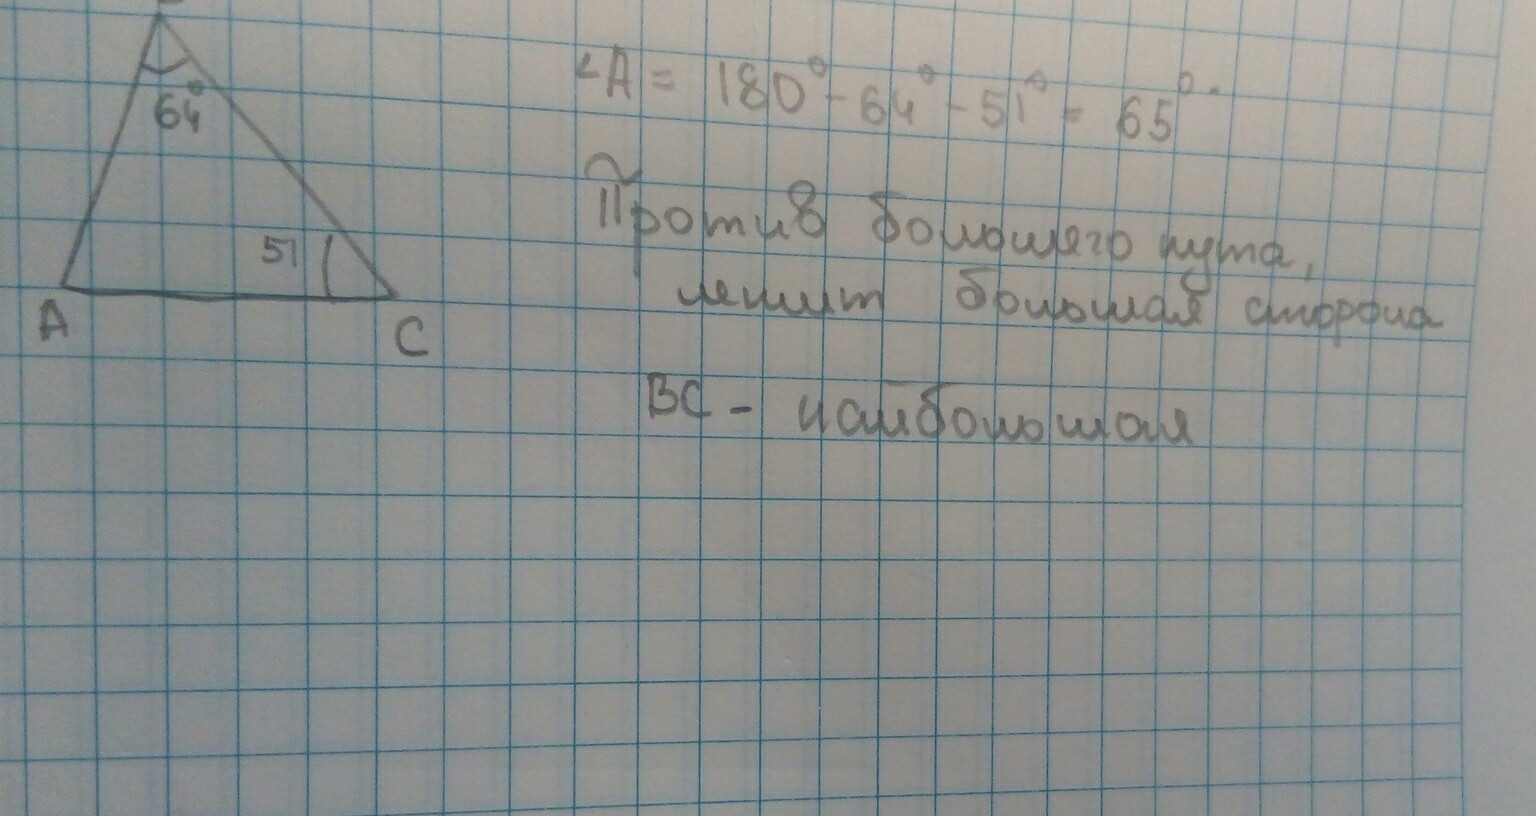 64°
51
A
C
∠A = 180° - 64° - 51° = 65°.
Против большего кута,
лежит большая сторона
BC - найбольшая